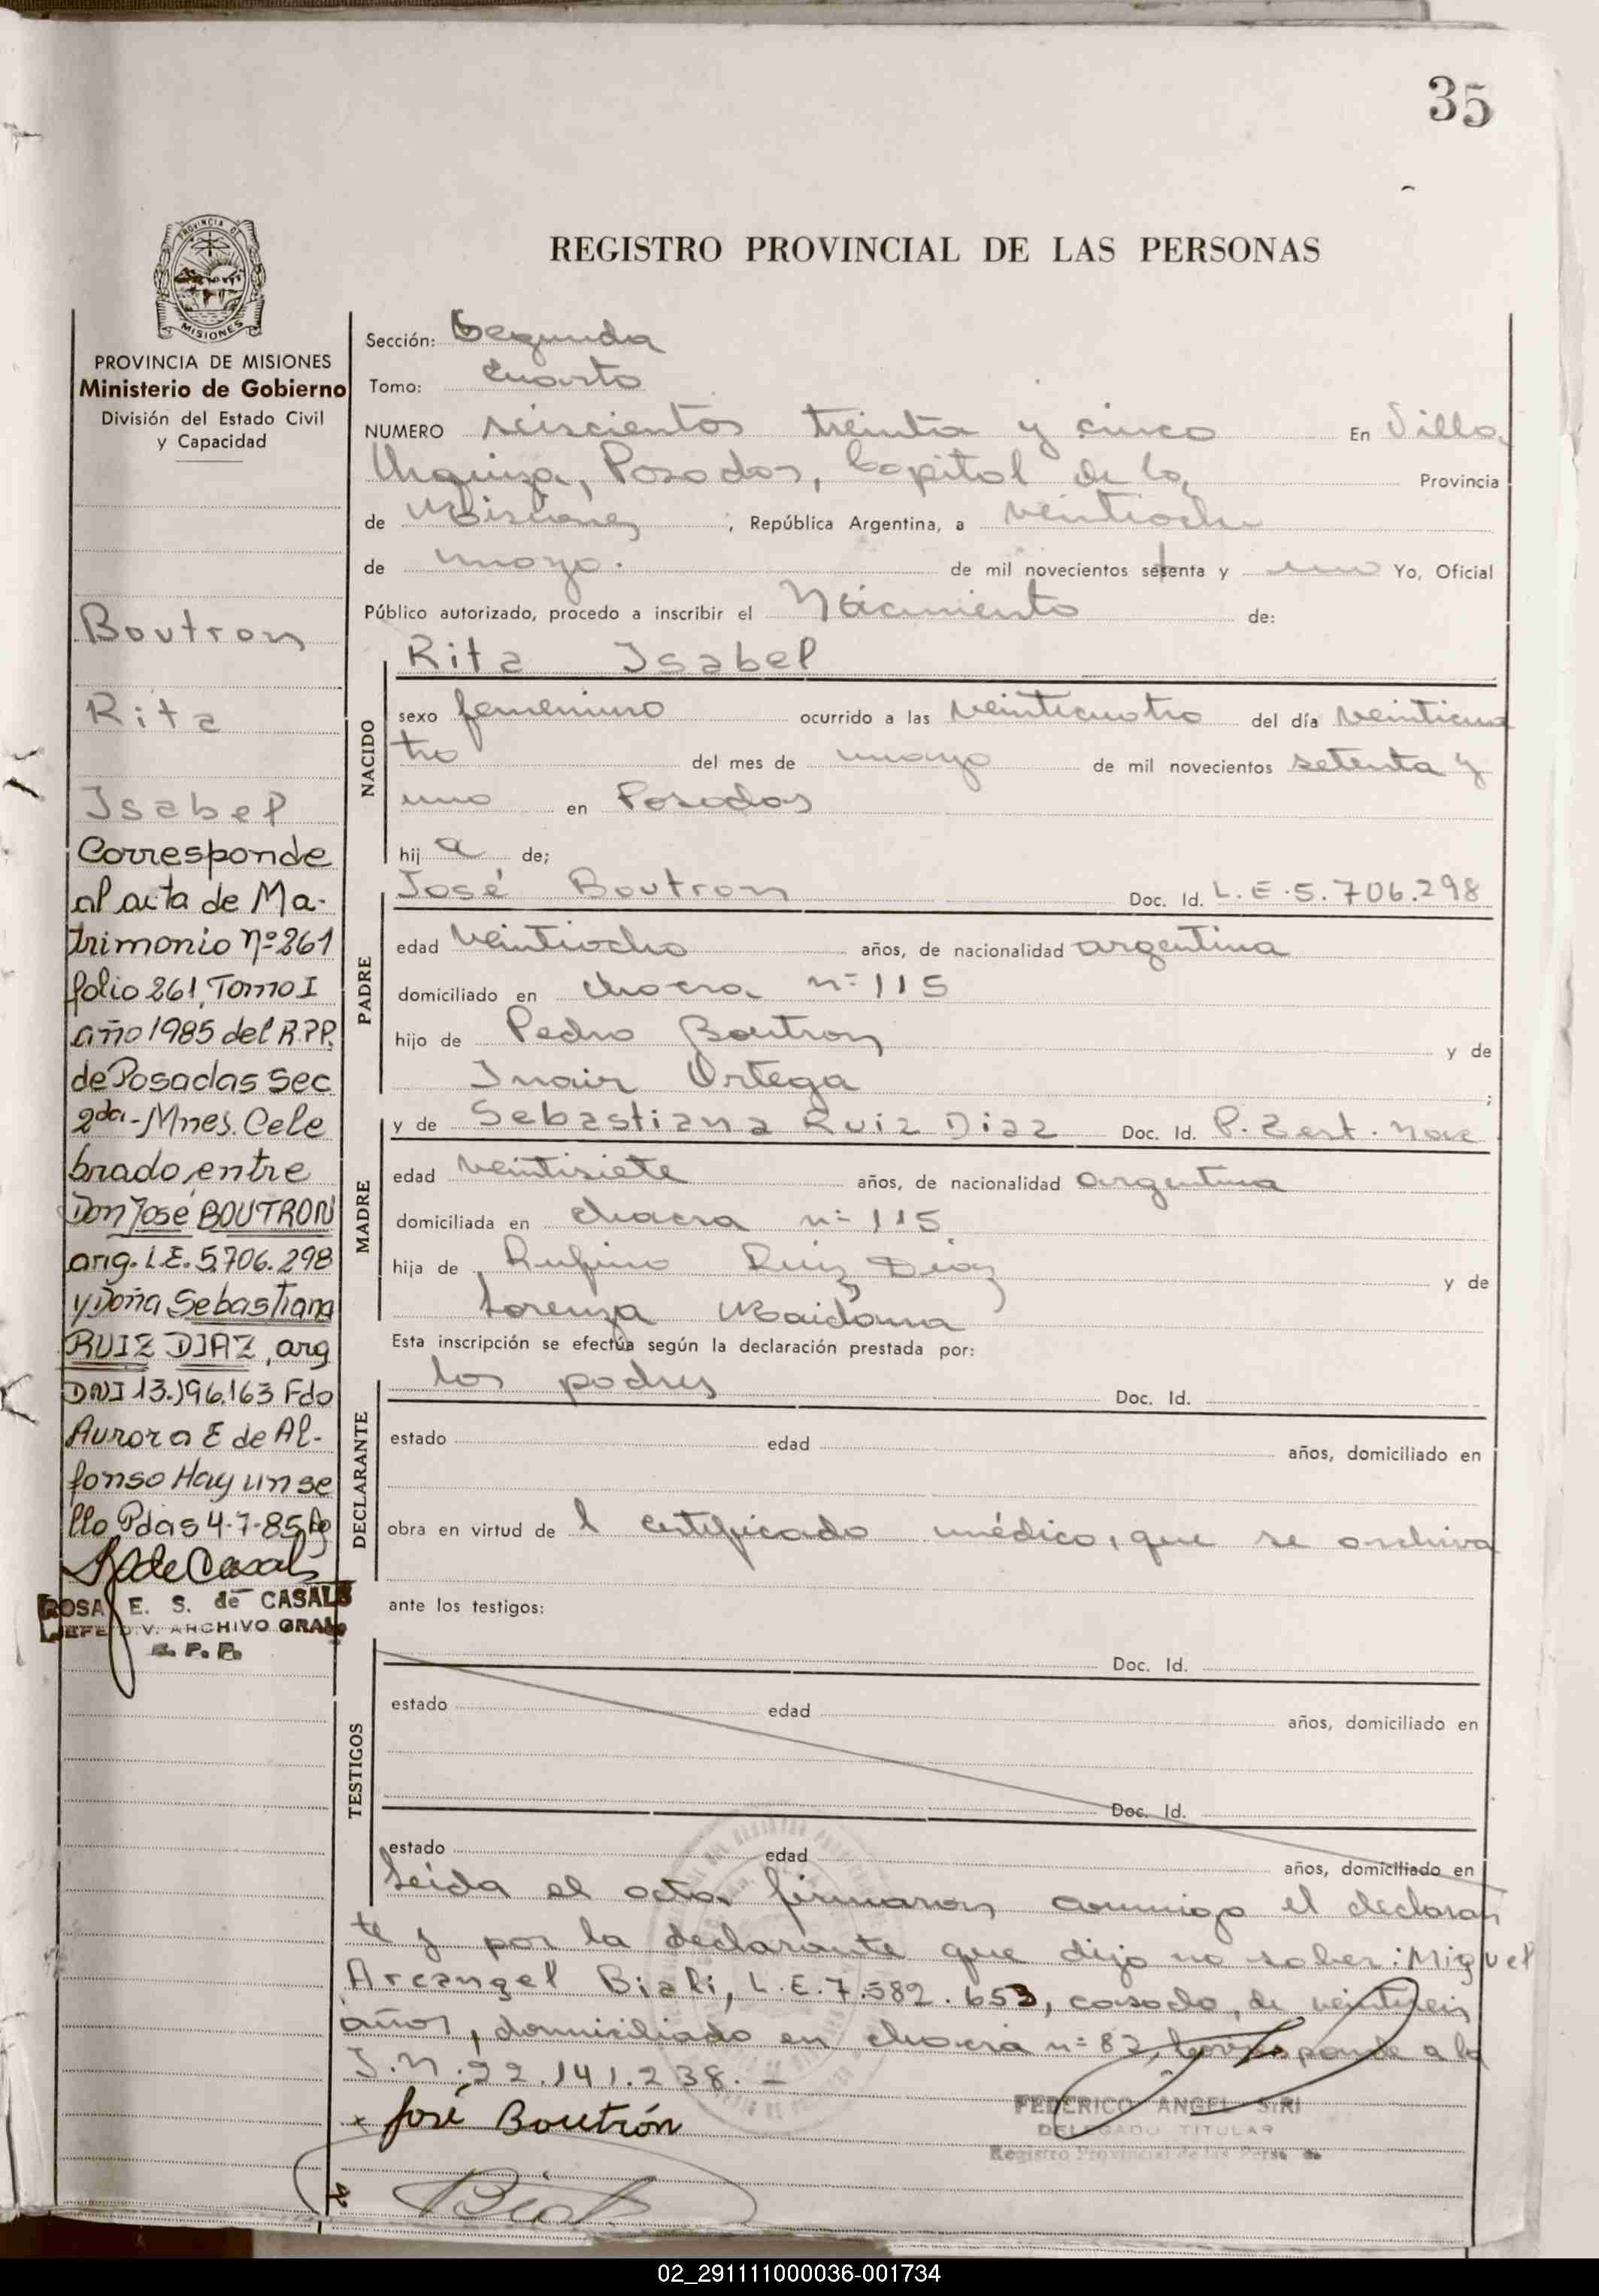 35
REGISTRO PROVINCIAL DE LAS PERSONAS
PROVINCIA DE
MISIONES
PROVINCIA DE MISIONES
Ministerio de Gobierno
División del Estado Civil
y Capacidad
Boutron
Rita
Isabel
Corresponde
al acta de Ma-
trimonio Nº 261
folio 261, Tomo I
año 1985 del R.P.P.
de Posadas Sec
2da - Mnes. Cele
brado entre
Don José BOUTRON
arg. L.E. 5.706.298
y Doña Sebastiana
RUIZ DIAZ, arg
DNI 13.196.163 Fdo
Aurora E de Al-
fonso Hay un se
llo Pdas 4-7-85
R de Casals
ROSA E. S. de CASALS
JEFE DIV. ARCHIVO GRAL
R. P. P.
Sección: Segunda
Tomo: Cuarto
NUMERO seiscientos treinta y cinco En Villa
Urquiza, Posadas, Capital de la Provincia
de Misiones, República Argentina, a veintiocho
de mayo. de mil novecientos setenta y uno Yo, Oficial
Público autorizado, procedo a inscribir el Nacimiento de:
Rita Isabel
NACIDO
sexo femenino ocurrido a las veinticuatro del día veinticua
tro del mes de mayo de mil novecientos setenta y
uno en Posadas
hij a de;
José Boutron Doc. Id. L.E.5.706.298
PADRE
edad veintiocho años, de nacionalidad argentina
domiciliado en chacra nº 115
hijo de Pedro Boutron y de
Ortega ;
MADRE
y de Sebastiana Ruiz Diaz Doc. Id. P.
edad veintisiete años, de nacionalidad argentina
domiciliada en chacra nº 115
hija de Rufino Ruiz Diaz y de
Lorenza Maidana
Esta inscripción se efectúa según la declaración prestada por:
DECLARANTE
los padres Doc. Id.
estado edad años, domiciliado en
obra en virtud de l certificado médico, que se archiva
ante los testigos:
TESTIGOS
Doc. Id.
estado edad años, domiciliado en
Doc. Id.
estado edad años, domiciliado en
Leida el acta, firmaron conmigo el declaran
te y por la declarante que dijo no saber: Miguel
Arcangel Biali, L.E.7.582.653, casado, de veintiseis
años, domiciliado en chacra nº 82, Corresponde a la
I.N.22.141.238. -
x José Boutrón
FEDERICO ANGEL SIRI
DELEGADO TITULAR
Registro Provincial de las Personas
02_291111000036-001734